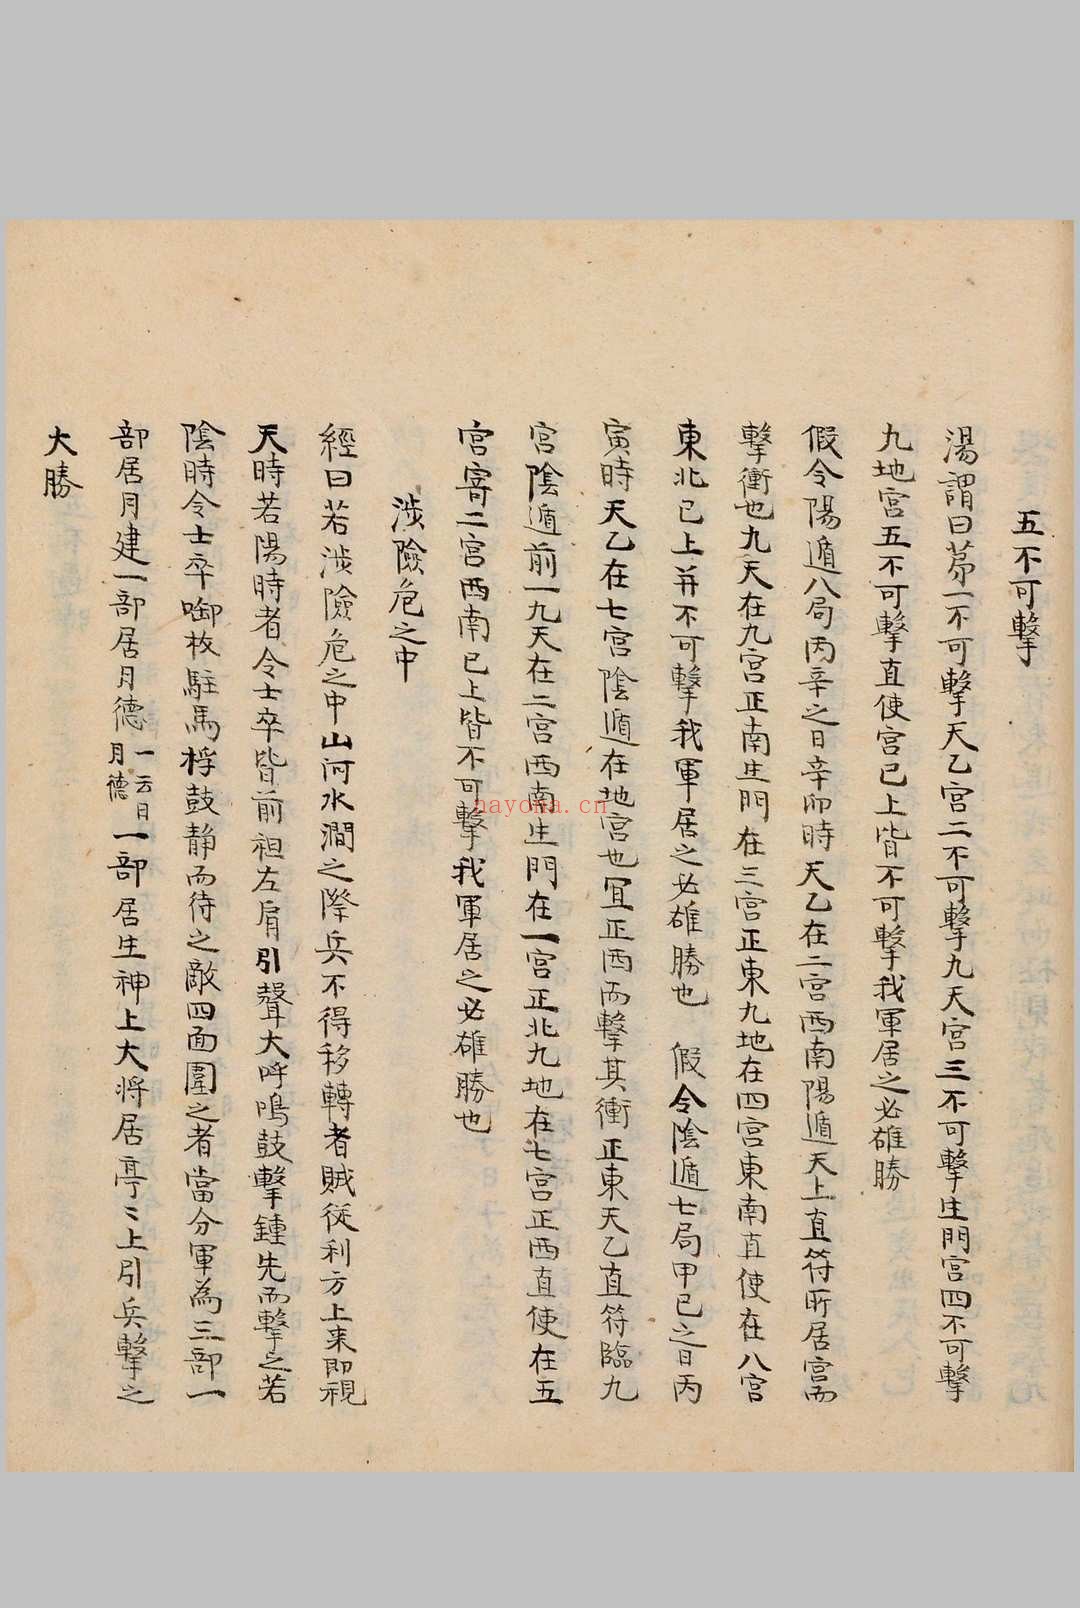 五不可擊
湯謂曰苐一不可擊天乙宮二不可擊九天宮三不可擊生門宮四不可擊
九地宮五不可擊直使宮已上皆不可擊我軍居之必雄勝
假令陽遁八局丙辛之日辛卯時天乙在二宮西南陽遁天上直符所居宮而
擊衝也九天在九宮正南生門在三宮正東九地在四宮東南直使在八宮
東北已上并不可擊我軍居之必雄勝也　假令陰遁七局甲已之日丙
寅時天乙在七宮陰遁在地宮也宜正西而擊其衝正東天乙直符臨九
宮陰遁前一九天在二宮西南生門在一宮正北九地在七宮正西直使在五
宮寄二宮西南已上皆不可擊我軍居之必雄勝也
涉險危之中
經曰若涉險危之中山河水澗之際兵不得移轉者賊從利方上来即視
天時若陽時者令士卒皆前袒左肩引聲大呼鳴鼓擊鍾先而擊之若
陰時令士卒啣枚駐馬桴鼓靜而待之敵四面圍之者當分軍為三部一
部居月建一部居月德一云日月德一部居生神上大将居亭〻上引兵擊之
大勝
nayona.cn